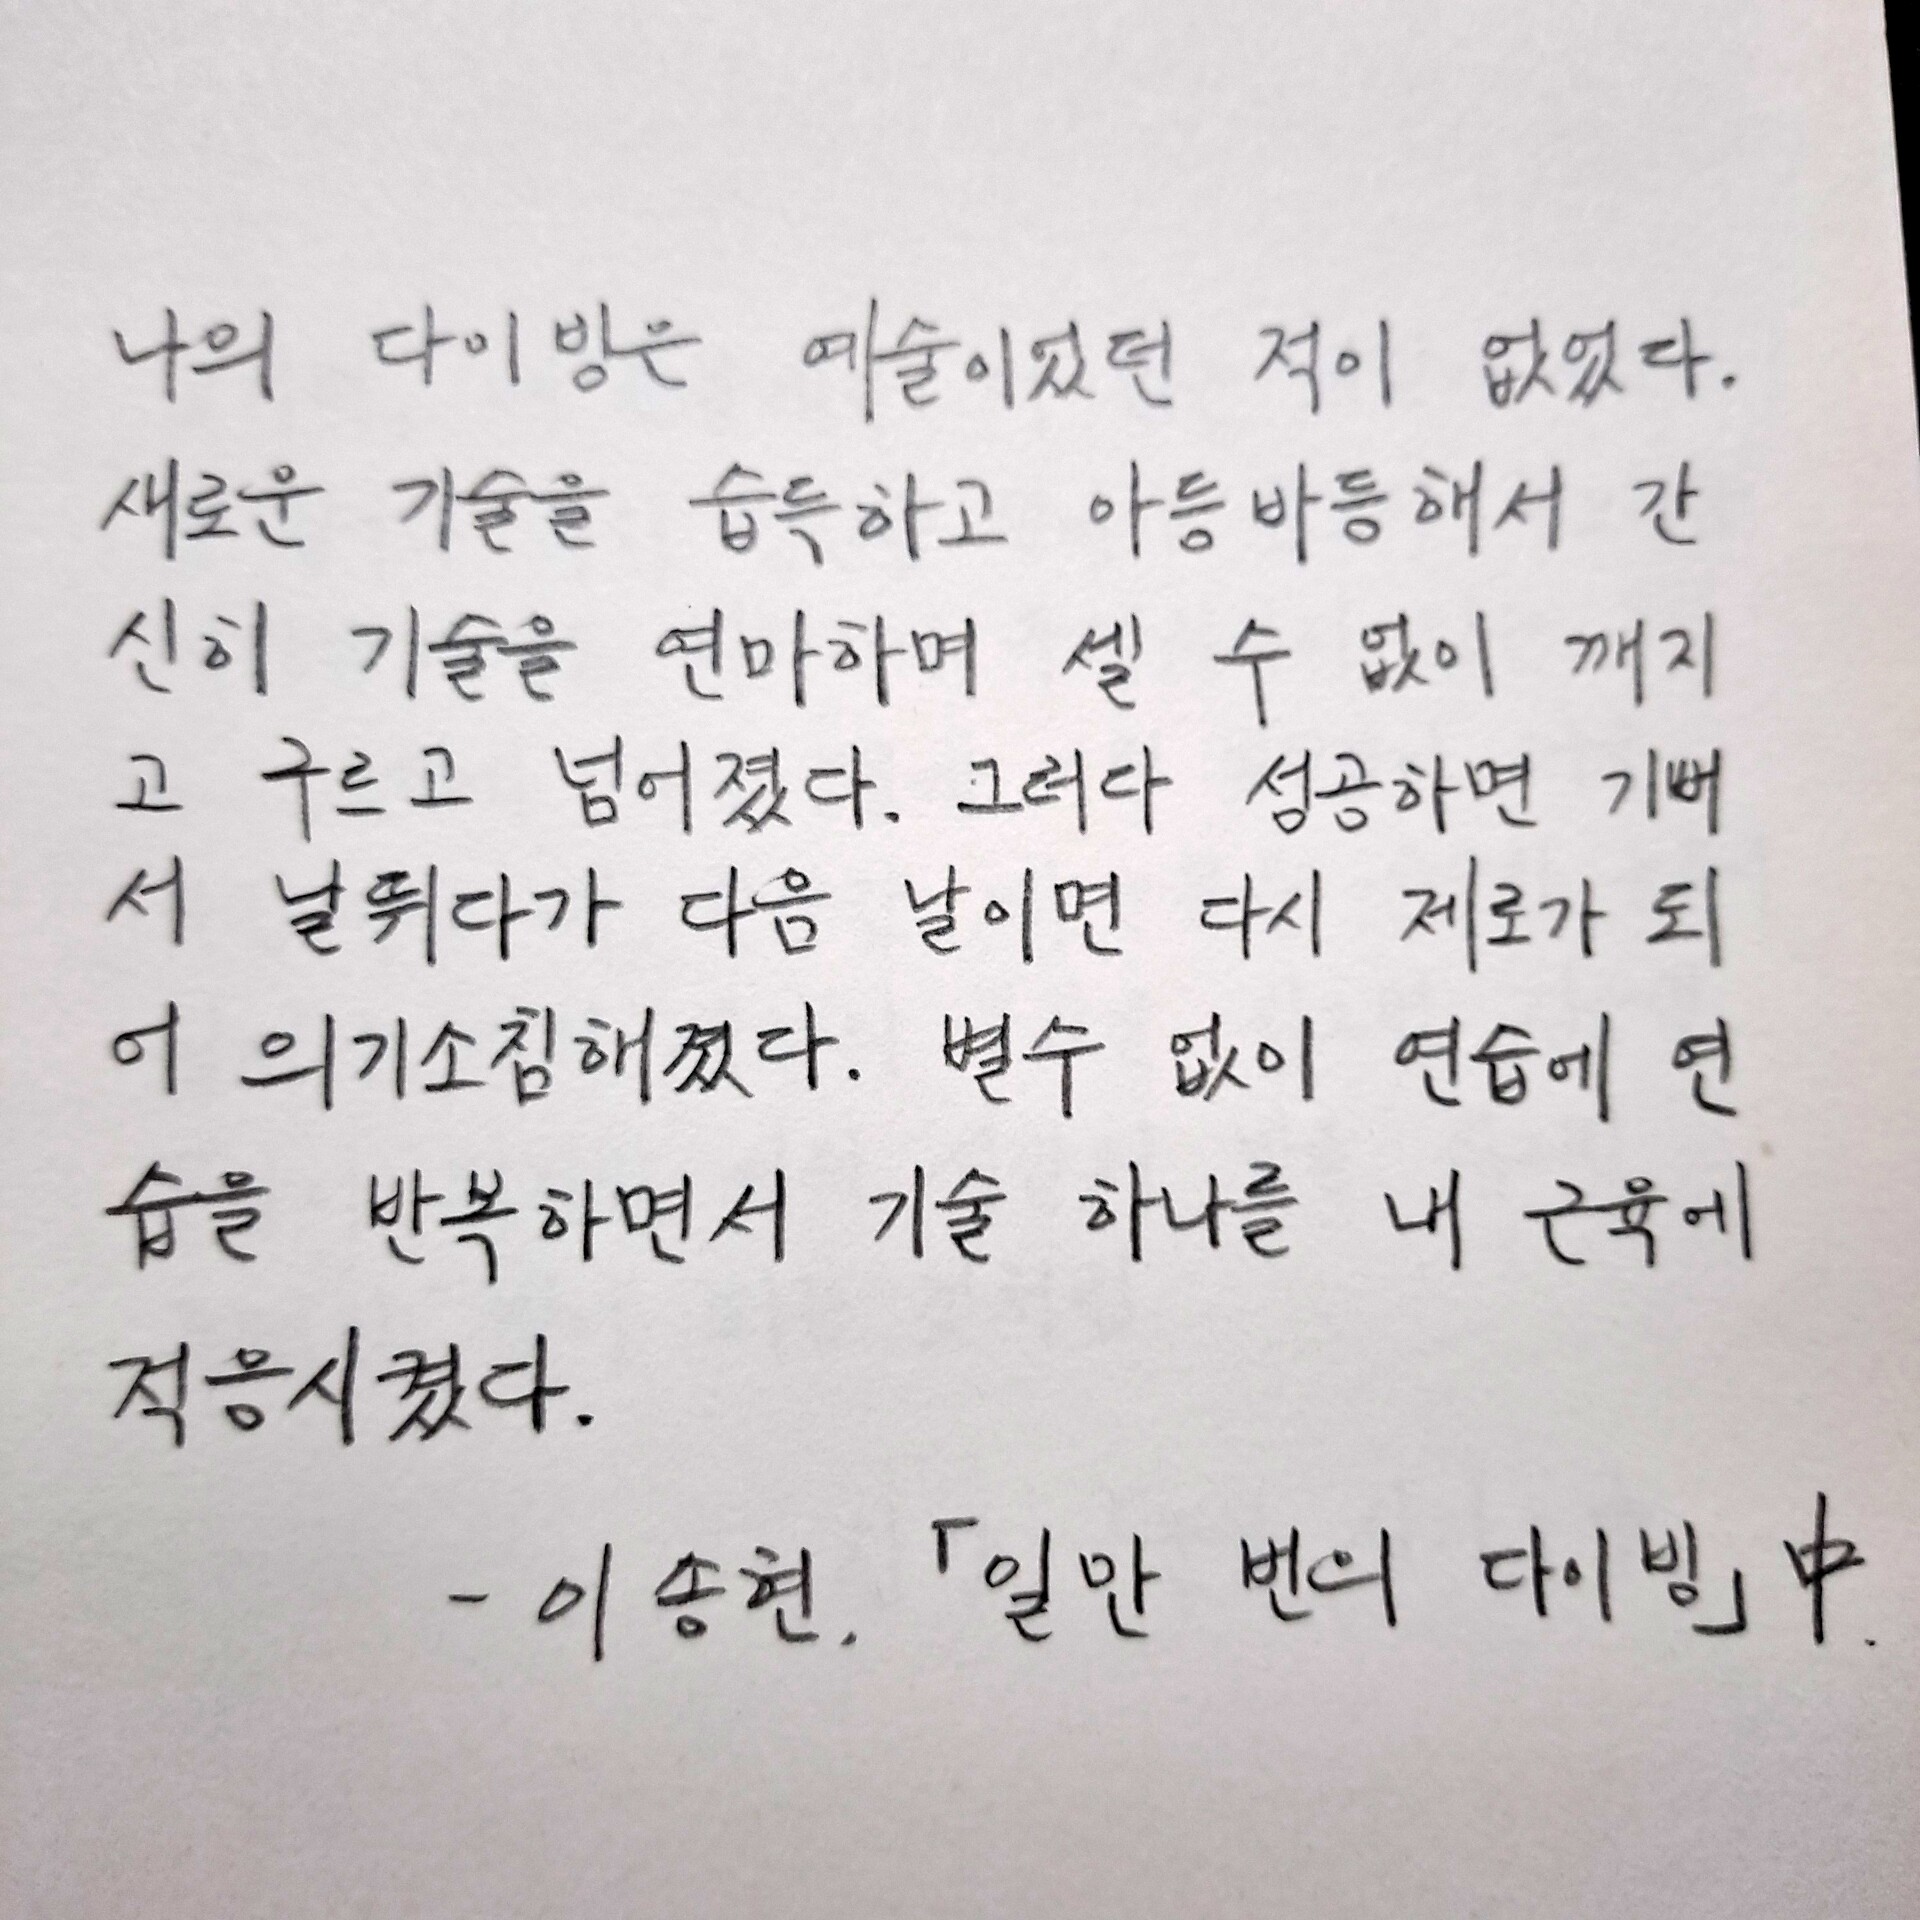 나의 다이빙은 예술이었던 적이 없었다.
새로운 기술을 습득하고 아등바등해서 간
신히 기술을 연마하며 셀 수 없이 깨지
고 구르고 넘어졌다. 그러다 성공하면 기뻐
서 날뛰다가 다음 날이면 다시 제로가 되
어 의기소침해졌다. 별수 없이 연습에 연
습을 반복하면서 기술 하나를 내 근육에
적응시켰다.
- 이송현, 「일만 번의 다이빙」 中.